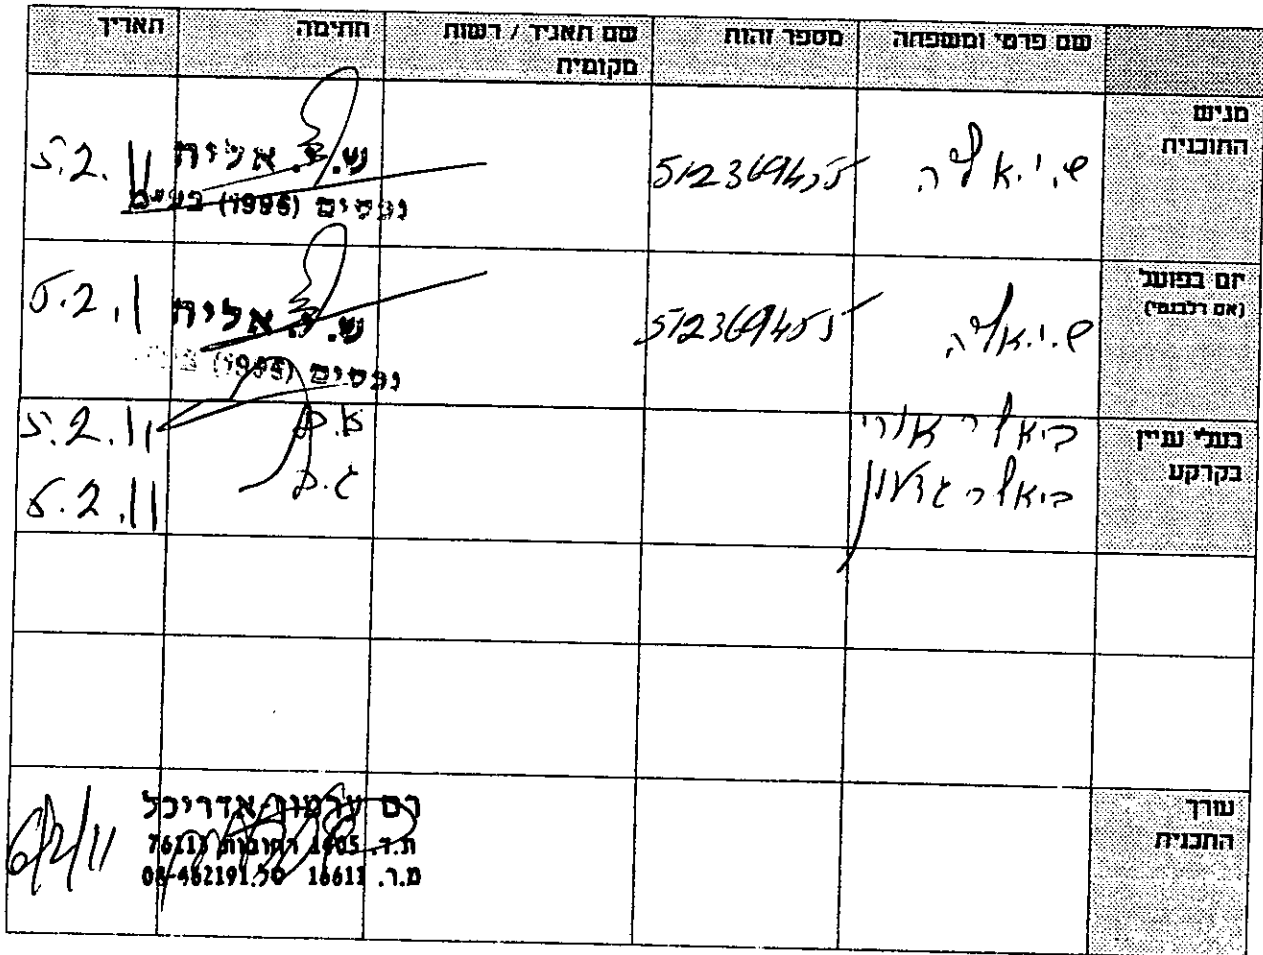 שם פרטי ומשפחה מספר זהות שם תאגיד / רשות מקומית חתימה תאריך
מגיש התוכנית
ש.י. אליה 512369455
ש.י. אלית
נכסים (1995) בע"מ
5.2.11
יזם בפועל
(אם רלבנטי)
ש.י. אליה 512369455
ש.י. אלית
נכסים (1995)
5.2.1
בעלי עניין בקרקע
אורי 5.2.11
גדעון 5.2.11
עורך התכנית
אדריכל
ת.ד. 1405 רחובות 76113
מ.ר. 16611 טל. 08-462191
6/2/11